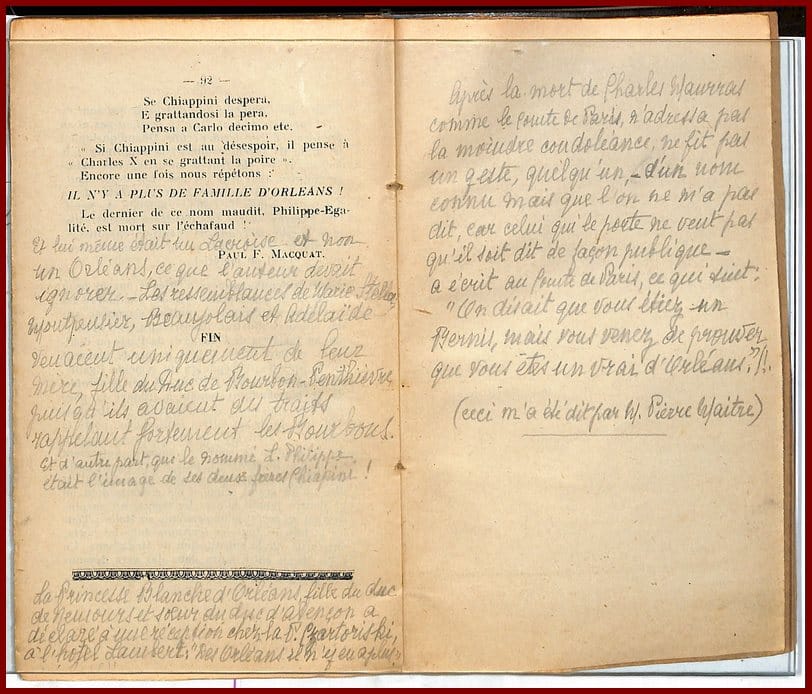 — 92 —
Se Chiappini despera,
E grattandosi la pera,
Pensa a Carlo decimo etc.
« Si Chiappini est au désespoir, il pense à
« Charles X en se grattant la poire ».
Encore une fois nous répétons :
IL N'Y A PLUS DE FAMILLE D'ORLEANS !
Le dernier de ce nom maudit, Philippe-Ega-
lité, est mort sur l'échafaud !
Et lui même était un Lacroise et non
PAUL F. MACQUAT.
un Orléans, ce que l'auteur devait
ignorer. - Les ressemblances de Marie
Montpensier, Beaujolais et Adelaide
FIN
venaient uniquement de leur
mère, fille du Duc de Bourbon-Penthièvre
puisqu'ils avaient des traits
rappelant fortement les Bourbons.
Et d'autre part, que le nommé L. Philippe
était l'image de ses deux frères Chiapini !
La Princesse Blanche d'Orléans, fille du duc
de Nemours et sœur du duc d'Alençon a
déclaré à une réception chez la P. Czartoriski,
à l'hotel Lambert: "Des Orléans il n'y en a plus"
Après la mort de Charles Maurras
comme le Comte de Paris, n'adressa pas
la moindre condoléance, ne fit pas
un geste, quelqu'un, - d'un nom
connu mais que l'on ne m'a pas
dit, car celui qui le porte ne veut pas
qu'il soit dit de façon publique -
a écrit au Comte de Paris, ce qui suit:
"On disait que vous étiez un
Bernis, mais vous venez de prouver
que vous êtes un vrai d'Orléans."!!
(ceci m'a été dit par M. Pièvre Maitre)